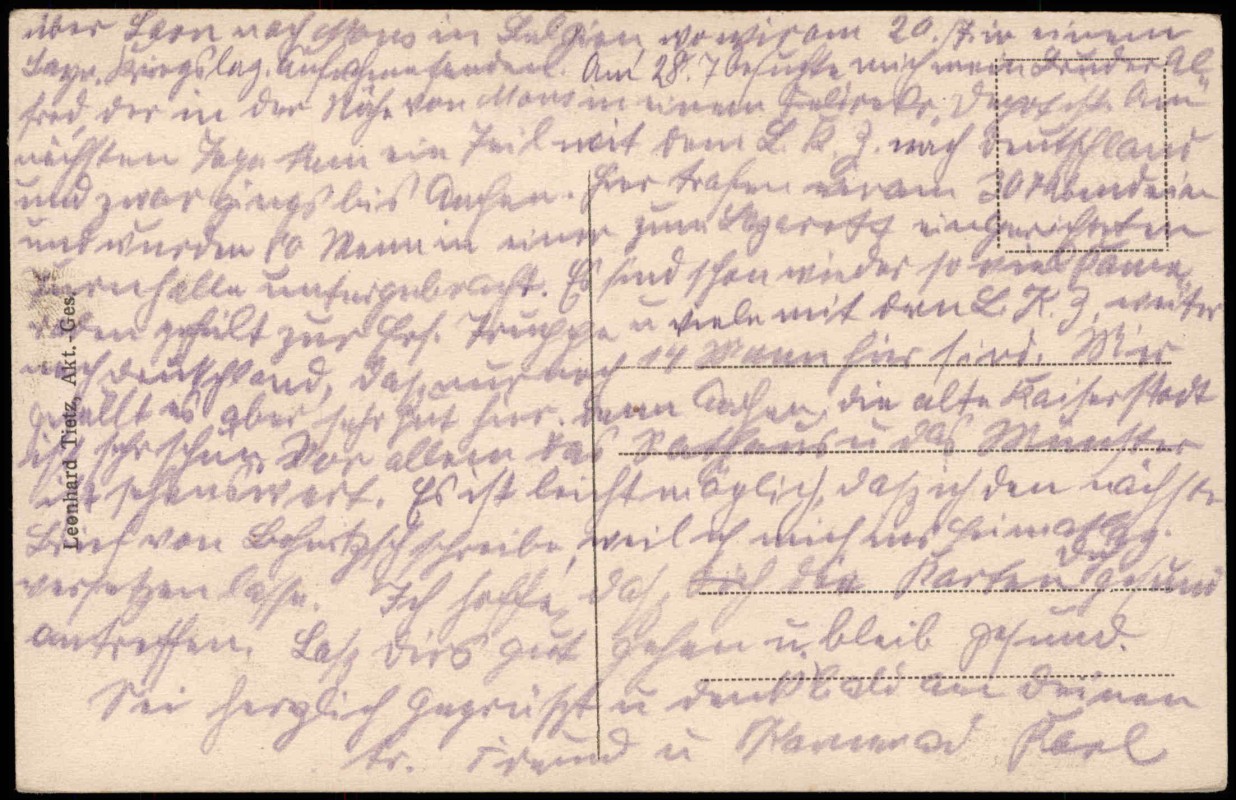 über Laon nach Mons in Belgien, wo wir am 20. 7. in einem
Bayr. Kriegslaz. Aufnahme fanden. Am 28. 7 besuchte mich mein Bruder Al-
fred, der in der Nähe von Mons in einem ist. Am
nächsten Tage kam ein Teil mit dem L. K. Z. nach Deutschland
und zwar gings bis Aachen. Hier trafen wir am 30 7 Abend ein
und wurden 80 Mann in einer zum Lazarett eingerichteten
Turnhalle untergebracht. Es sind schon wieder so viel Kame-
raden zur Ers. Truppe u viele mit dem L. K. Z. weiter
nach Deutschland, dass nur noch 14 Mann hier sind. Mir
gefällt es aber sehr gut hier. Denn Aachen, die alte Kaiserstadt
ist sehr schön. Vor allem das Rathaus u das Münster
ist sehenswert. Es ist leicht möglich, dass ich den nächsten
Brief von schreibe, weil ich mich ins Heimatlaz.
versetzen lasse. Ich hoffe, dass Dich die Karten gesund
antreffen. Lass Dirs gut gehen u. bleib gesund.
Sei herzlich gegrüsst u denk bald an Deinen
tr. Freund u Kamerad Karl
Leonhard Tietz, Akt.-Ges.